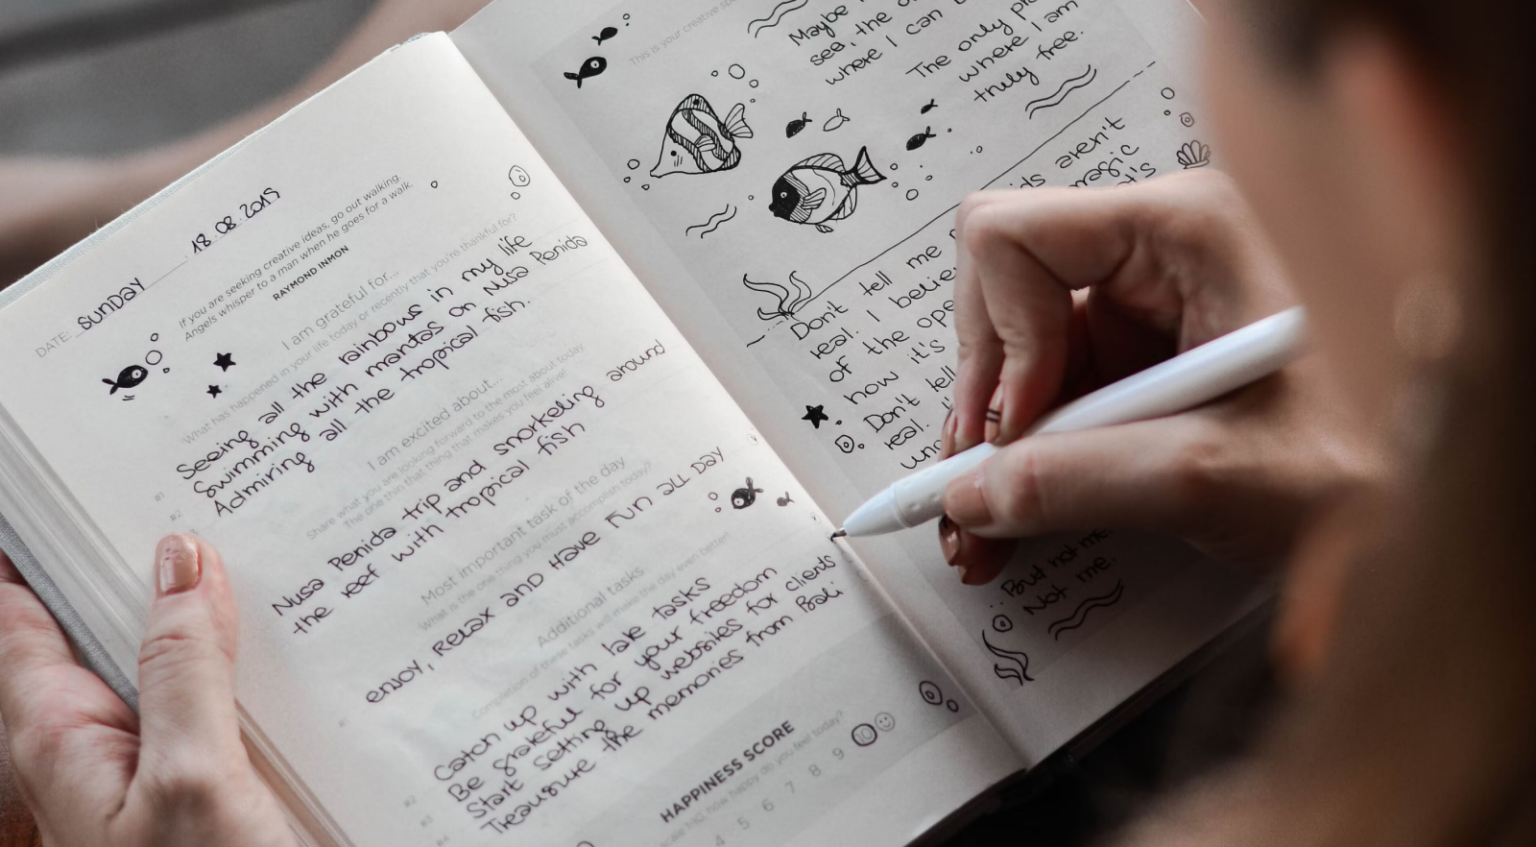 DATE: SUNDAY 18.08.2019
If you are seeking creative ideas, go out walking.
Angels whisper to a man when he goes for a walk.
RAYMOND INMON
I am grateful for...
What has happened in your life today or recently that you're thankful for?
#1 Seeing all the rainbows in my life
#2 Swimming with mantas on Nusa Penida
Admiring all the tropical fish.
I am excited about...
Share what you are looking forward to the most about today
The one thing that makes you feel alive!
Nusa Penida trip and snorkeling around
the reef with tropical fish
Most important task of the day
What is the one thing you must accomplish today?
ENJOY, RELAX AND HAVE FUN ALL DAY
Additional tasks
Completion of these tasks will make the day even better!
Catch up with late tasks
#2 Be grateful for your freedom
#3 Start setting up websites for clients
#4 Treausure the memories from Bali
HAPPINESS SCORE
how happy do you feel today?
4 5 6 7 8 9 10
This is your creative
Maybe
see, the
where I can
The only
where I am
truly free.
aren't
magic
Don't tell me
real. I
of the
how it's
Don't tell
real.
But not me.
Not me.